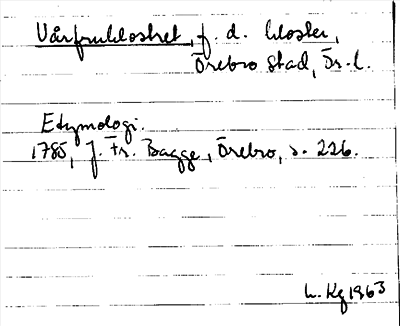 Vårfruklostret, f. d. kloster,
Örebro stad, Ör. l.
Etymologi.
1785, J. Fr. Bagge, Örebro, s. 226.
L. Kg 1963